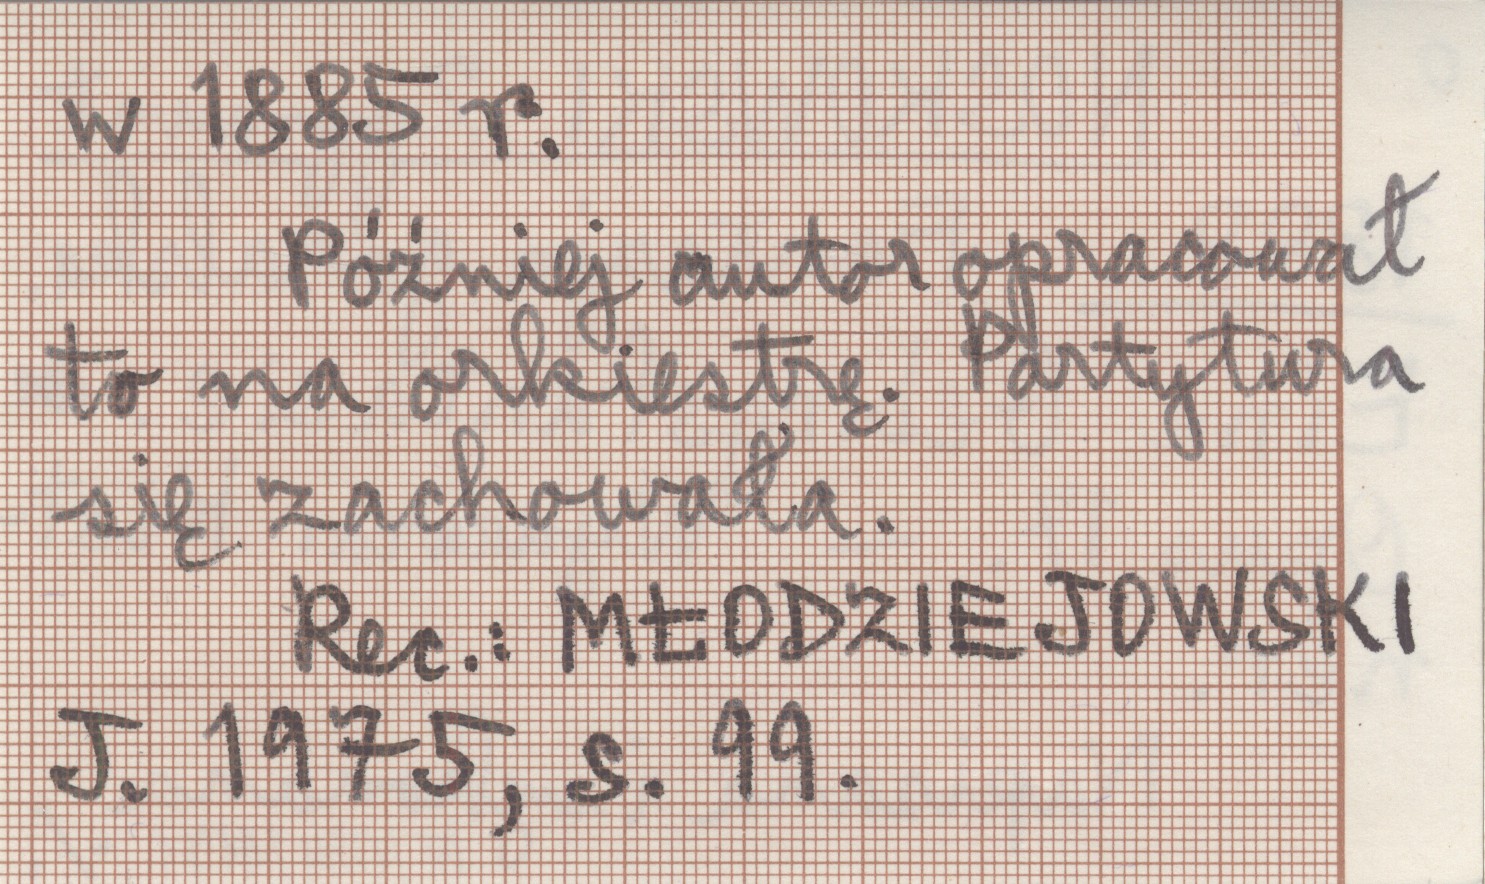 w 1885 r.
Później autor opracował
to na orkiestrę. Partytura
się zachowała.
Rec.: MŁODZIEJOWSKI
J. 1975, s. 99.